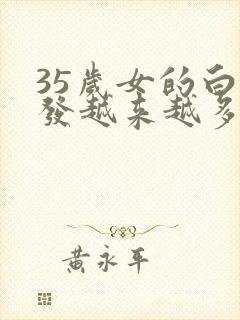 35歲女的白
發越来越多
黄永平